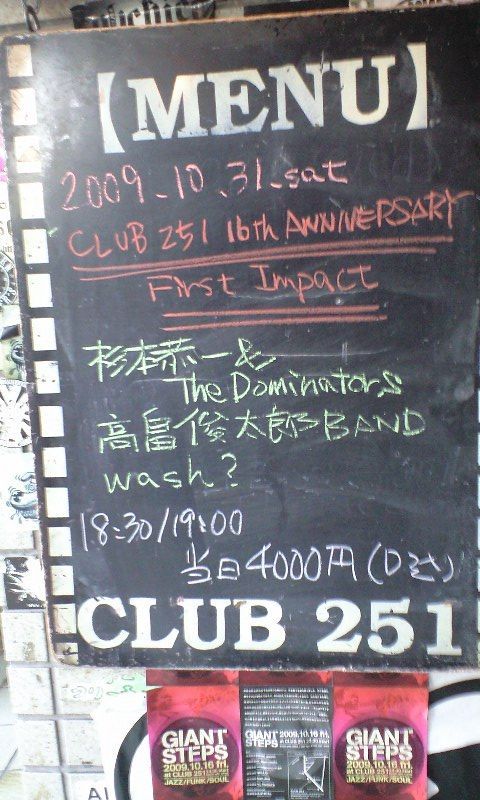 【MENU】
2009.10.31.sat
CLUB 251 16th ANNIVERSARY
First Impact
杉本恭一&
The Dominators
高畠俊太郎BAND
wash?
18:30/19:00
当日4000円(D代込)
CLUB 251
GIANT
STEPS
2009.10.16 fri.
at CLUB 251
JAZZ/FUNK/SOUL
GIANT
STEPS
2009.10.16 fri.
at CLUB 251
GIANT
STEPS
2009.10.16 fri.
at CLUB 251
JAZZ/FUNK/SOUL